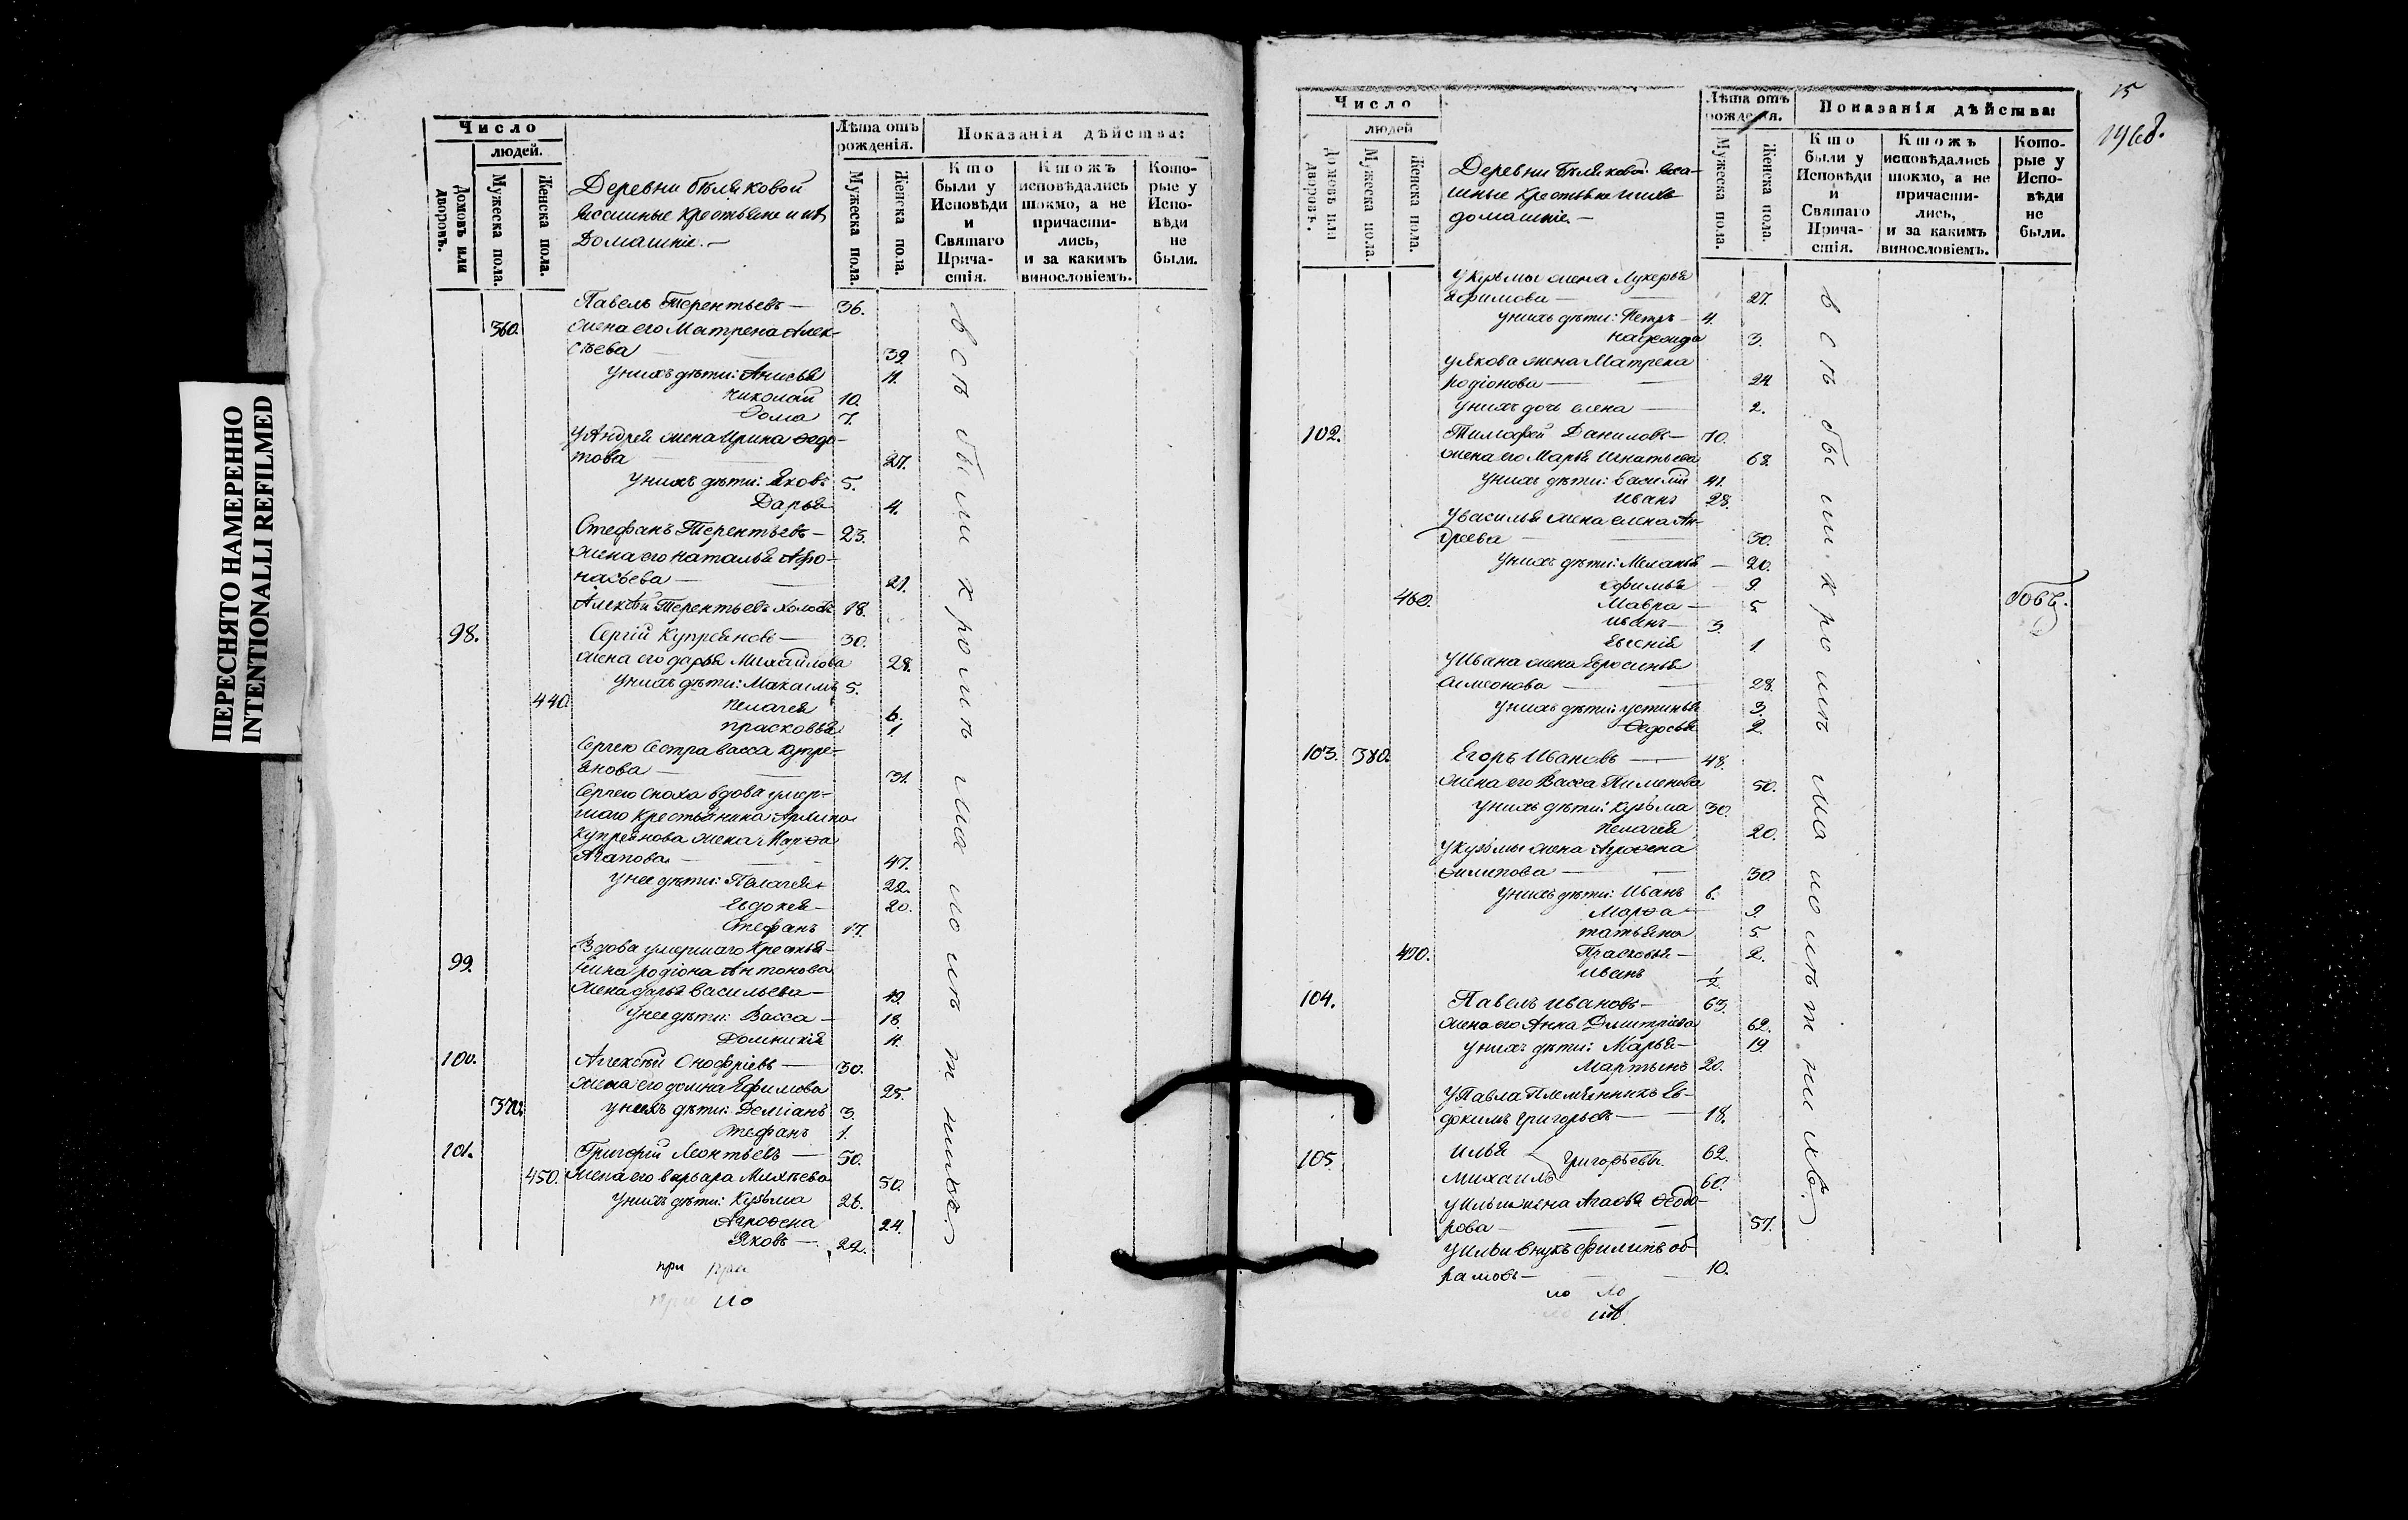 ПЕРЕСНЯТО НАМЕРЕННО
INTENTIONALLI REFILMED
Число
людей.
Домовъ или дворовъ.
Мужеска пола.
Женска пола.
Деревни Бѣляковой
ясашные крестьяне и ихъ
Домашніе. —
Лѣта отъ рожденія.
Мужеска пола.
Женска пола.
Показанія дѣйства:
Кто были у Исповѣди и Святаго Прича-стія.
Ктожъ исповѣдались токмо, а не причасти-лись, и за какимъ винословіемъ.
Кото-рые у Испо-вѣди не были.
Павелъ Терентьевъ — 36.
360. жена его Матрена Алек-
сѣева — 39.
у нихъ дѣти: Анисья 11.
Николай 10.
Ѳома 7.
у Андрея жена Ирина Ѳедо-
това 27.
у нихъ дѣти: Яковъ 5.
Дарья 4.
Стефанъ Терентьевъ — 23.
жена его Наталья Афо-
насьева — 21.
Алексѣй Терентьевъ холостъ 18.
98. Сергій Купреяновъ — 30.
жена его Дарья Михайлова 28.
у нихъ дѣти: Максимъ 5.
440. Пелагея 6.
Прасковья 1.
Сергею сестра Васса Купре-
янова — 31.
Сергею сноха вдова умер-
шаго крестьянина
Купреянова жена Марѳа
Агапова — 47.
у нее дѣти: Пелагея 22.
Евдокея — 20.
Стефанъ 17.
99. Вдова умершаго крестья-
нина Родіона Антонова
жена Дарья Васильева — 49.
у нее дѣти: Васса — 18.
Домникія 11.
100. Алексѣй Онофріевъ — 30.
жена его Домна Ефимова 25.
370. у нихъ дѣти: Деміанъ 3.
Стефанъ 1.
101. Григорій Леонтьевъ — 50.
450. жена его Варвара Михѣева 50.
у нихъ дѣти: Кузьма 26.
Агрофена 24.
Яковъ — 22.
всѣ были кромѣ малолѣтнихъ.
при при
при ло
15
Число
людей
Домовъ или дворовъ.
Мужеска пола.
Женска пола.
Деревни Бѣляковой яса-
шные крестьяне и ихъ
домашніе. —
Лѣта отъ рожденія.
Мужеска пола.
Женска пола.
Показанія дѣйства:
Кто были у Исповѣди и Святаго Прича-стія.
Ктожъ исповѣдались токмо, а не причасти-лись, и за какимъ винословіемъ.
Кото-рые у Испо-вѣди не были.
у Кузьмы жена Лукерья
Ефимова — 27.
у нихъ дѣти: Петръ — 4.
Надежда 3.
у Якова жена Матрена
Родіонова — 24
у нихъ дочь Елена — 2.
102. Тимофей Даниловъ — 70.
жена его Марья Игнатьева 68.
у нихъ дѣти: Василій 41.
Иванъ 28.
у Василья жена Елена Ан-
дреева — 30.
у нихъ дѣти: Меланья — 20.
Ефимья — 9.
460. Мавра — 5.
Иванъ — 3.
Евгенія 1
у Ивана жена Евросинья
Симеонова — 28.
у нихъ дѣти: Устинья 3.
Ѳедосья 2.
103. 380. Егоръ Ивановъ — 48.
жена его Васса Пименова 50.
у нихъ дѣти: Кузьма 30.
Пелагея 20.
у Кузьмы жена Агрофена
Филипова — 30.
у нихъ дѣти: Иванъ 6.
Марѳа — 9.
Татьяна 5.
470. Прасковья — 2.
Иванъ 1/2
104. Павелъ Ивановъ — 63.
жена его Анна Дмитріева 62.
у нихъ дѣти: Марья — 19.
Мартынъ 20.
у Павла племянникъ Ев-
докимъ Григорьевъ — 18.
105 Илья Григорьевы. 62.
Михаилъ 60.
у Ильи жена Агафья Ѳедо-
рова — 57.
у Ильи внукъ Филипъ Об-
рамовъ — 10.
всѣ были кромѣ малолѣтнихъ.
ло ло